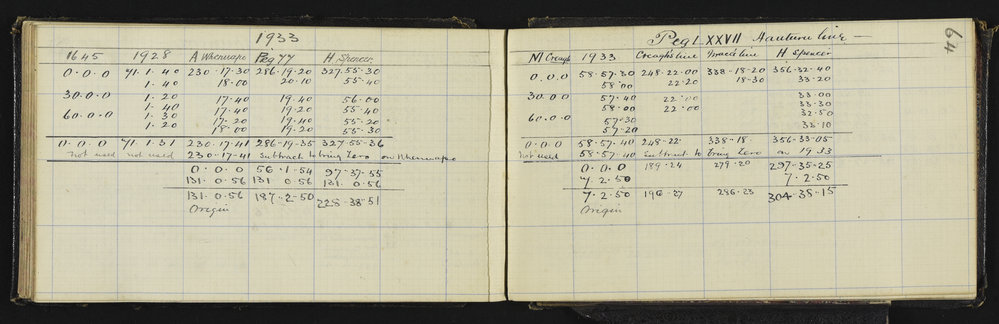 1933
1645 1928 A Whenuapo Peg YY H Spencer
0.0.0 71.1.40 230.17.30 286.19.20 327.55.30
1.40 18.00 20.10 55.40
30.0.0 1.20 17.40 19.40 56.00
1.40 17.40 19.20 55.40
60.0.0 1.30 17.20 19.40 55.20
1.20 18.00 19.20 55.30
0.0.0 71.1.31 230.17.41 286.19.35 327.55.36
not used not used 230.17.41 Subtract to bring Zero on Whenuapo
0.0.0 56.1.54 97.37.55
131.0.56 131.0.56 131.0.56
131.0.56 187.2.50 228.38.51
Origin
Peg LXXVII Hauturu line
64
N1 Creagh 1933 Creagh's line line H Spencer
0.0.0 58.57.30 248.22.00 338.18.20 356.32.40
58.00 22.20 18.30 33.20
30.00 57.40 22.00 33.00
58.00 22.00 33.30
60.0.0 57.30 32.50
57.20 33.10
0.0.0 58.57.40 248.22 338.18 356.33.05
not used 58.57.40 Subtract to bring Zero on 1933
0.0.0 189.24 279.20 297.35.25
7.2.50 7.2.50
7.2.50 196.27 286.23 304.38.15
Origin